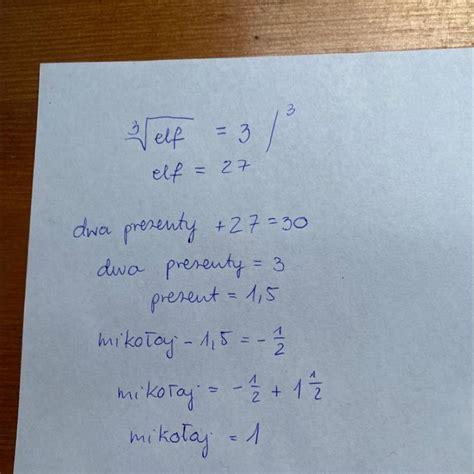 ∛elf = 3 /³
elf = 27
dwa prezenty + 27 = 30
dwa prezenty = 3
prezent = 1,5
mikołaj - 1,5 = - 1/2
mikołaj = - 1/2 + 1 1/2
mikołaj = 1